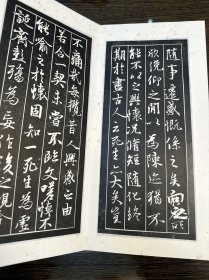 隨事遷感慨係之矣向之所
欣俛仰之間以為陳迹猶不
能不以之興懷況脩短隨化終
期於盡古人云死生亦大矣豈
不痛哉每攬昔人興感之由
若合一契未嘗不臨文嗟悼不
能喻之於懷固知一死生為虛
誕齊彭殤為妄作後之視今